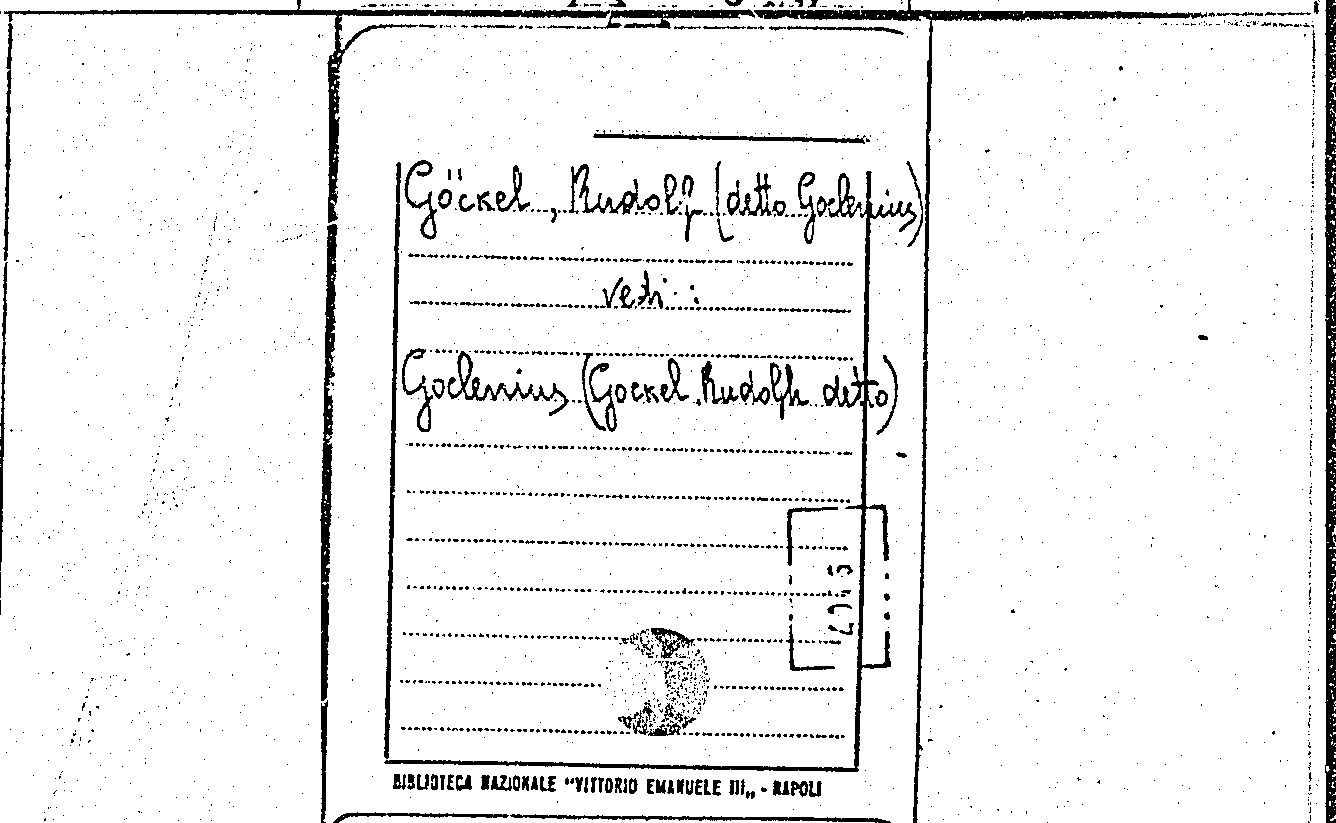 Göckel, Rudolf (detto Goclenius)
vedi:
Goclenius (Gockel Rudolph detto)
BIBLIOTECA NAZIONALE "VITTORIO EMANUELE III„ - NAPOLI